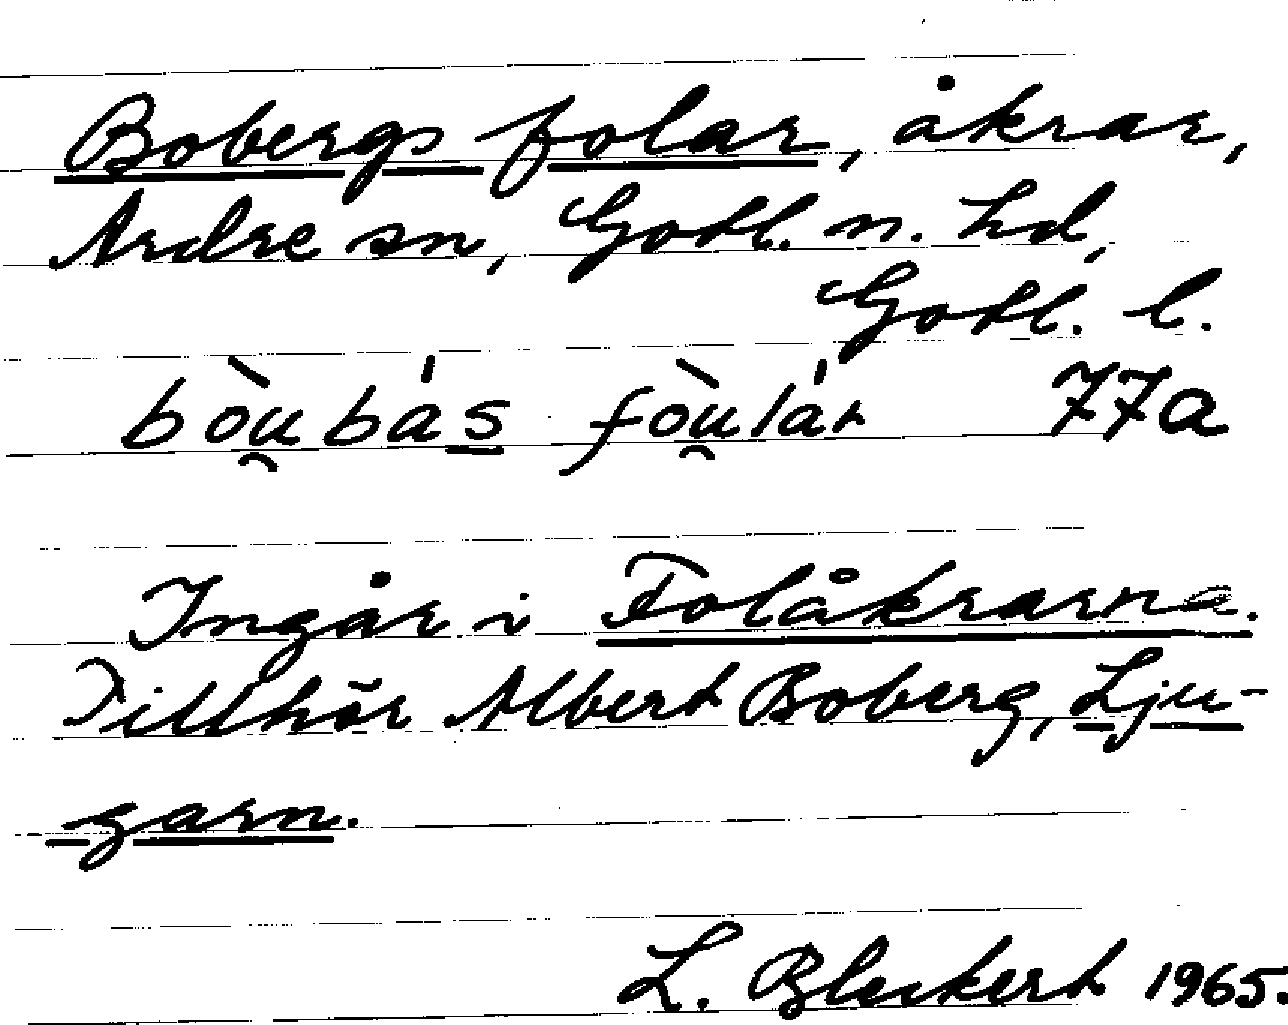 Bobergs folar, åkrar,
Ardre sn, Gotl. n. hd,
Gotl. l.
bòu̯ba̍s fòu̯la̍r 77a
Ingår i Folåkrarna.
Tillhör Albert Boberg, Lju-
garn.
L. Bleckert 1965.